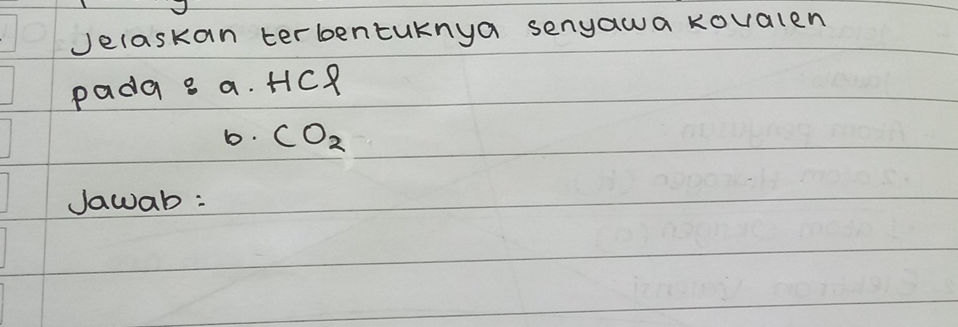 Jelaskan terbentuknya senyawa kovalen
pada : a. HCl
b. CO₂
Jawab :